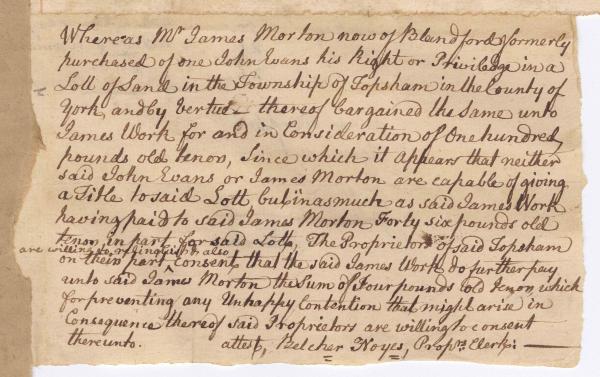 Whereas Mr James Morton now of Blandford formerly
purchased of one John Evans his Right or Priviledge in a
Lott of Land in the Township of Topsham in the County of
York, and by Vertue thereof bargained the Same unto
James Work for and in Consideration of One hundred
pounds old tenor, Since which it appears that neither
said John Evans or James Morton are capable of giving
a Title to said Lott, but inasmuch as said James Work
having paid to said James Morton Forty six pounds old
tenor in part for said Lott, The Proprietors of said Topsham
are willing to relinquish & also
on their part Consent that the said James Work do further pay
unto said James Morton the Sum of Four pounds old tenor which
for preventing any Unhappy Contention that might arise in
Consequence thereof said Proprietors are willing to consent
thereunto. attest, Belcher Noyes, Proprs Clerk: